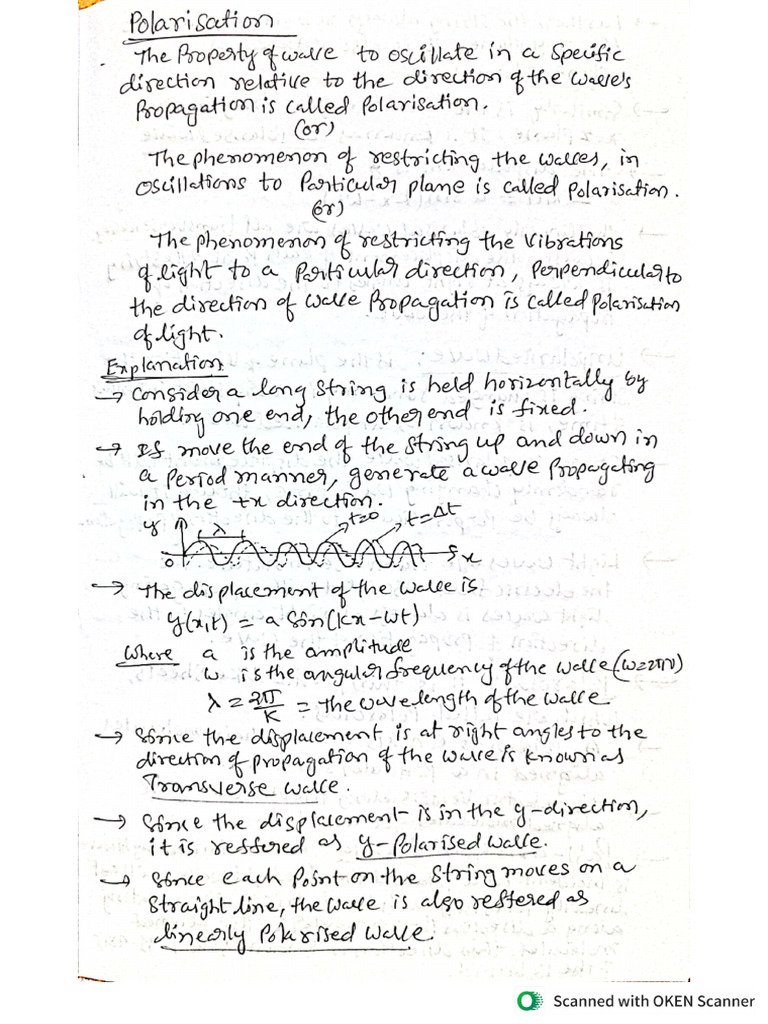 Polarisation
The Property of wave to oscillate in a specific
direction relative to the direction of the wave's
Propagation is called Polarisation.
(or)
The phenomenon of restricting the waves, in
oscillations to Particular plane is called Polarisation.
(or)
The phenomenon of restricting the vibrations
of light to a Particular direction, Perpendicular to
the direction of wave Propagation is called Polarisation
of light.
Explanation:
→ Consider a long string is held horizontally by
holding one end, the other end is fixed.
→ If move the end of the string up and down in
a Period manner, generate a wave Propagating
in the +x direction.
y λ t=0 t=Δt
0 x
→ The displacement of the wave is
y(x,t) = a sin(kx-wt)
Where a is the amplitude
ω is the angular frequency of the wave (ω=2πν)
λ = 2π/K = the wave length of the wave
→ Since the displacement is at right angles to the
direction of propagation of the wave is known as
Transverse wave.
→ Since the displacement is in the y-direction,
it is reffered as y-Polarised wave.
→ Since each Point on the string moves on a
straight line, the wave is also reffered as
linearly Polarised wave.
Scanned with OKEN Scanner